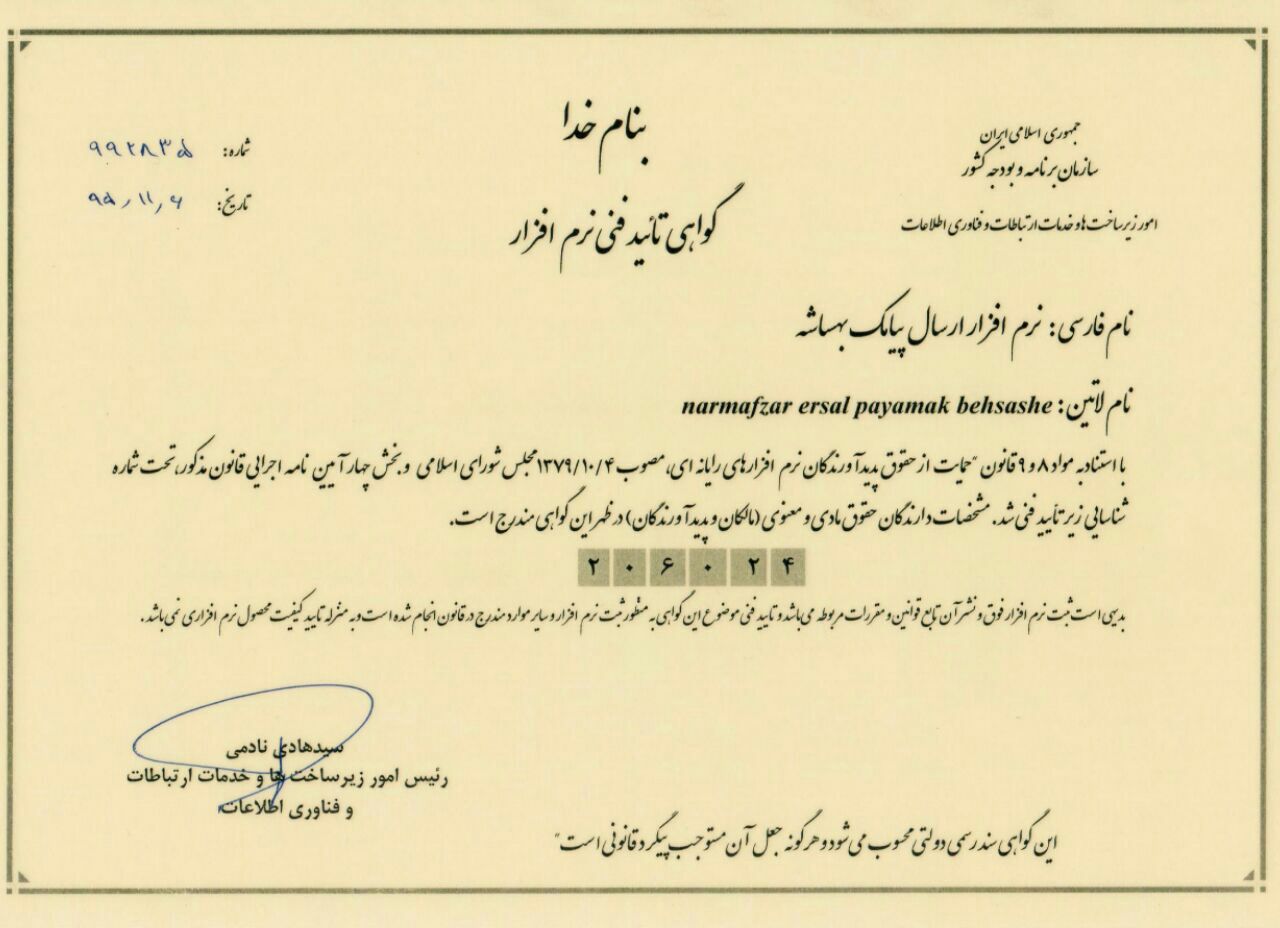 بنام خدا
جمهوری اسلامی ایران
سازمان برنامه و بودجه کشور
امور زیرساخت ها و خدمات ارتباطات و فناوری اطلاعات
شماره: ۹۹۲۸۳۵
تاریخ: ۹۵/۱۱/۶
گواهی تأئید فنی نرم افزار
نام فارسی: نرم افزار ارسال پیامک بهساشه
نام لاتین: narmafzar ersal payamak behsashe
با استناد به مواد ۸ و ۹ قانون "حمایت از حقوق پدیدآورندگان نرم افزارهای رایانه ای، مصوب ۱۳۷۹/۱۰/۴ مجلس شورای اسلامی و بخش چهار آیین نامه اجرایی قانون مذکور، تحت شماره
شناسایی زیر تأیید فنی شد. مشخصات دارندگان حقوق مادی و معنوی (مالکان و پدیدآورندگان) در ظهر این گواهی مندرج است.
۲ ۰ ۶ ۰ ۲ ۴
بدیهی است ثبت نرم افزار فوق و نشر آن تابع قوانین و مقررات مربوطه می باشد و تایید فنی موضوع این گواهی به منظور ثبت نرم افزار و سایر موارد مندرج در قانون انجام شده است و به منزله تایید کیفیت محصول نرم افزاری نمی باشد.
سیدهادی نادمی
رئیس امور زیرساخت ها و خدمات ارتباطات
و فناوری اطلاعات
این گواهی سند رسمی دولتی محسوب می شود و هرگونه جعل آن مستوجب پیگرد قانونی است"